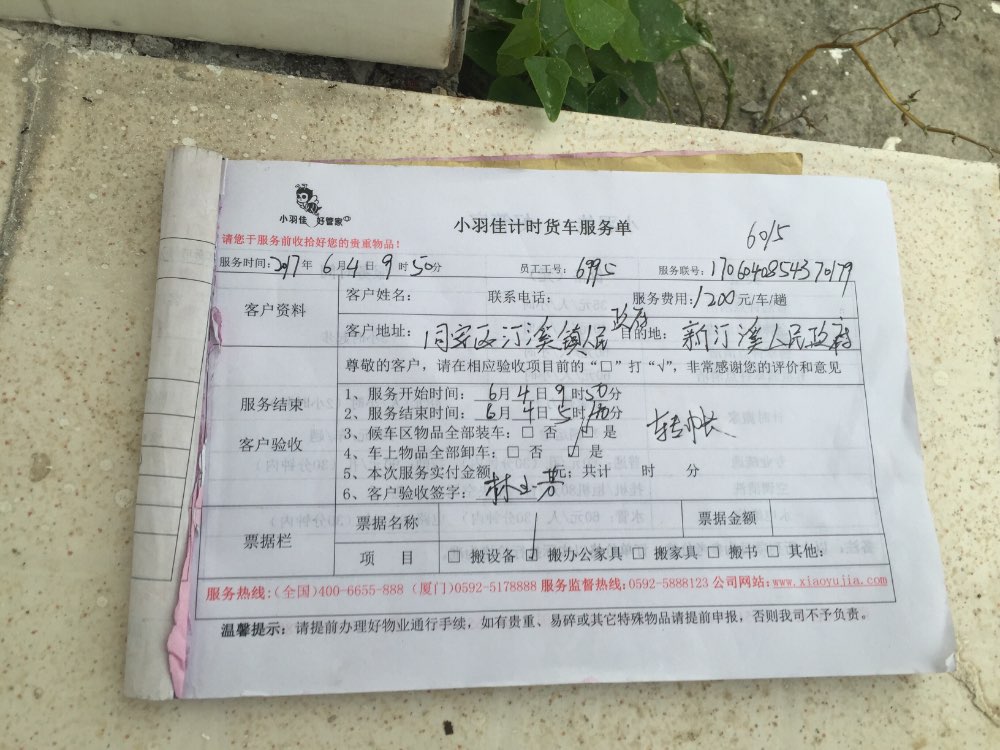 小羽佳 好管家
小羽佳计时货车服务单
6015
请您于服务前收拾好您的贵重物品！
服务时间: 2017年 6月 4日 9时 50分 员工工号: 6995 服务联号: 17060408543 70179
客户资料
客户姓名: 联系电话: 服务费用: 1200元/车/趟
客户地址: 同安区汀溪镇人民政府 目的地: 新汀溪人民政府
尊敬的客户，请在相应验收项目前的“□”打“√”，非常感谢您的评价和意见
服务结束
客户验收
1、服务开始时间: 6月 4日 9时50分
2、服务结束时间: 6月 4日 5时 分
3、候车区物品全部装车: □ 否 □ 是
转帐
4、车上物品全部卸车: □ 否 □ 是
5、本次服务实付金额 元; 共计 时 分
6、客户验收签字:
票据栏
票据名称 票据金额
项 目 □ 搬设备 □ 搬办公家具 □ 搬家具 □ 搬书 □ 其他:
服务热线:(全国)400-6655-888 (厦门)0592-5178888 服务监督热线:0592-5888123 公司网站:www.xiaoyujia.com
温馨提示: 请提前办理好物业通行手续，如有贵重、易碎或其它特殊物品请提前申报，否则我司不予负责。